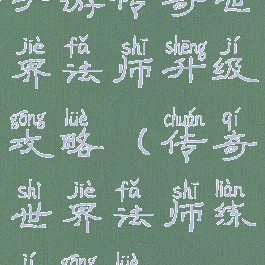 游传奇世
jiè fǎ shī shēng jí
界法师升级
gōng lüè chuán qí
攻略（传奇
shì jiè fǎ shī liàn
世界法师练
jí gōng lüè